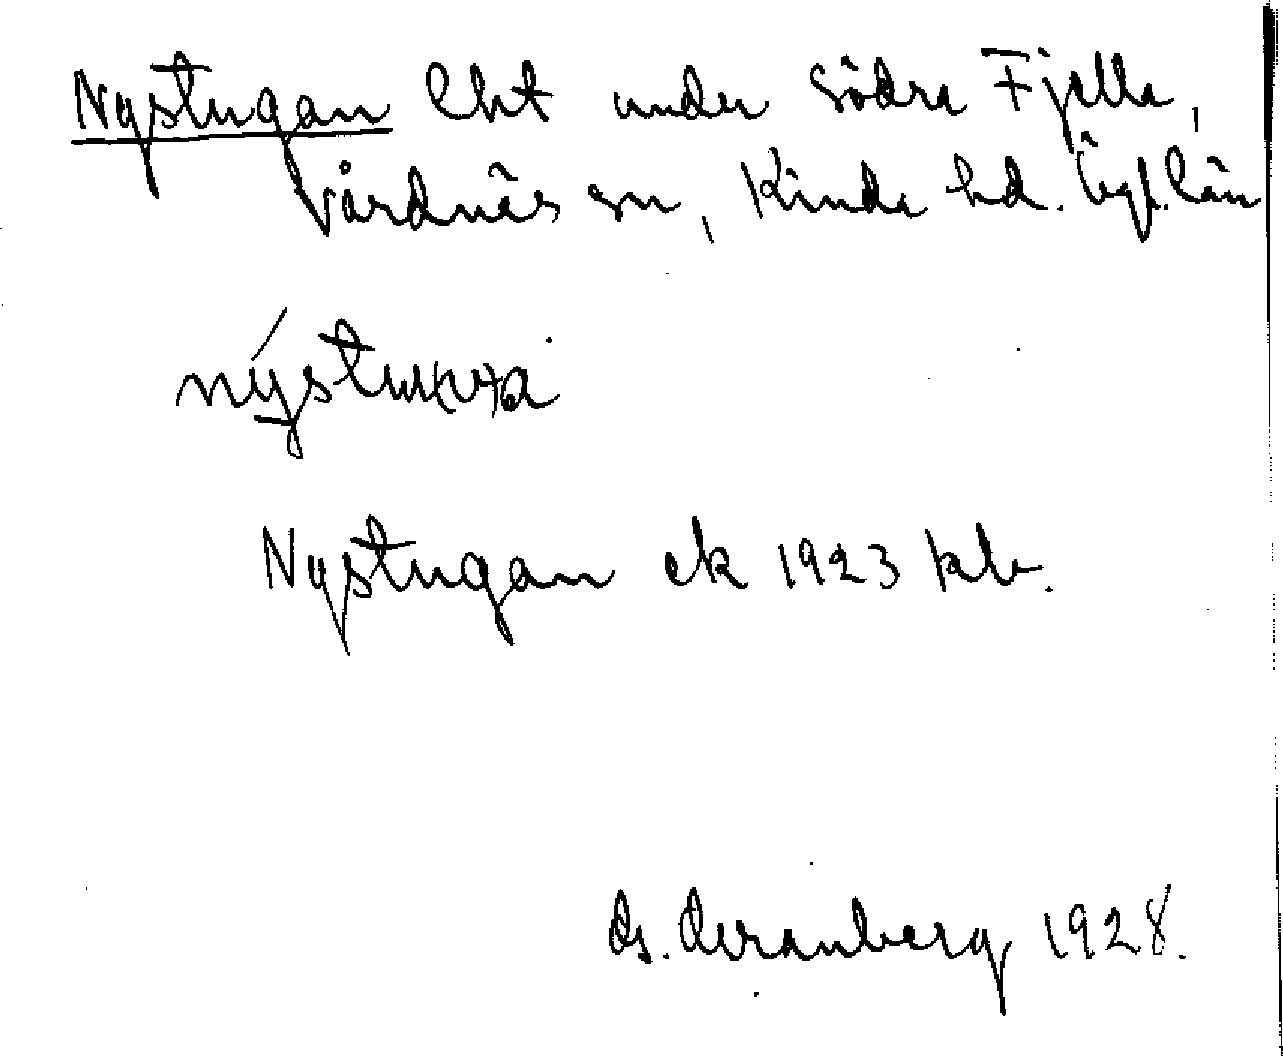 Nystugan lht under Södra Fjella,
Vårdnäs sn, Kinda hd. Ögl. län
Nystugan ek 1923 kb.
1928.